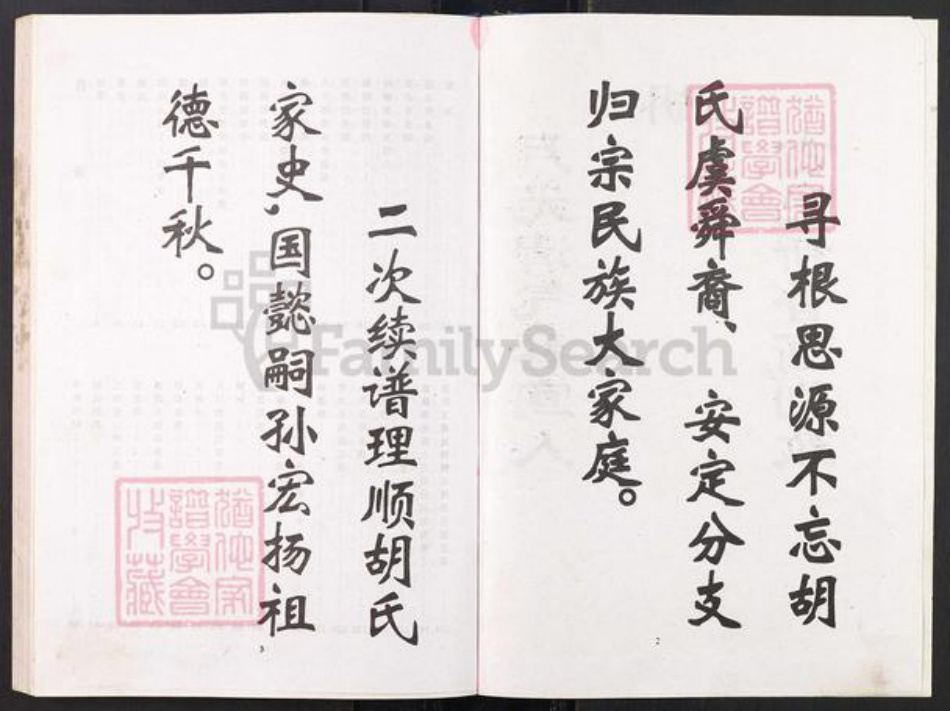 寻根思源不忘胡
氏虞舜裔、安定分支
归宗民族大家庭。
2
二次续谱理顺胡氏
家史、国懿嗣孙宏扬祖
德千秋。
3
FamilySearch